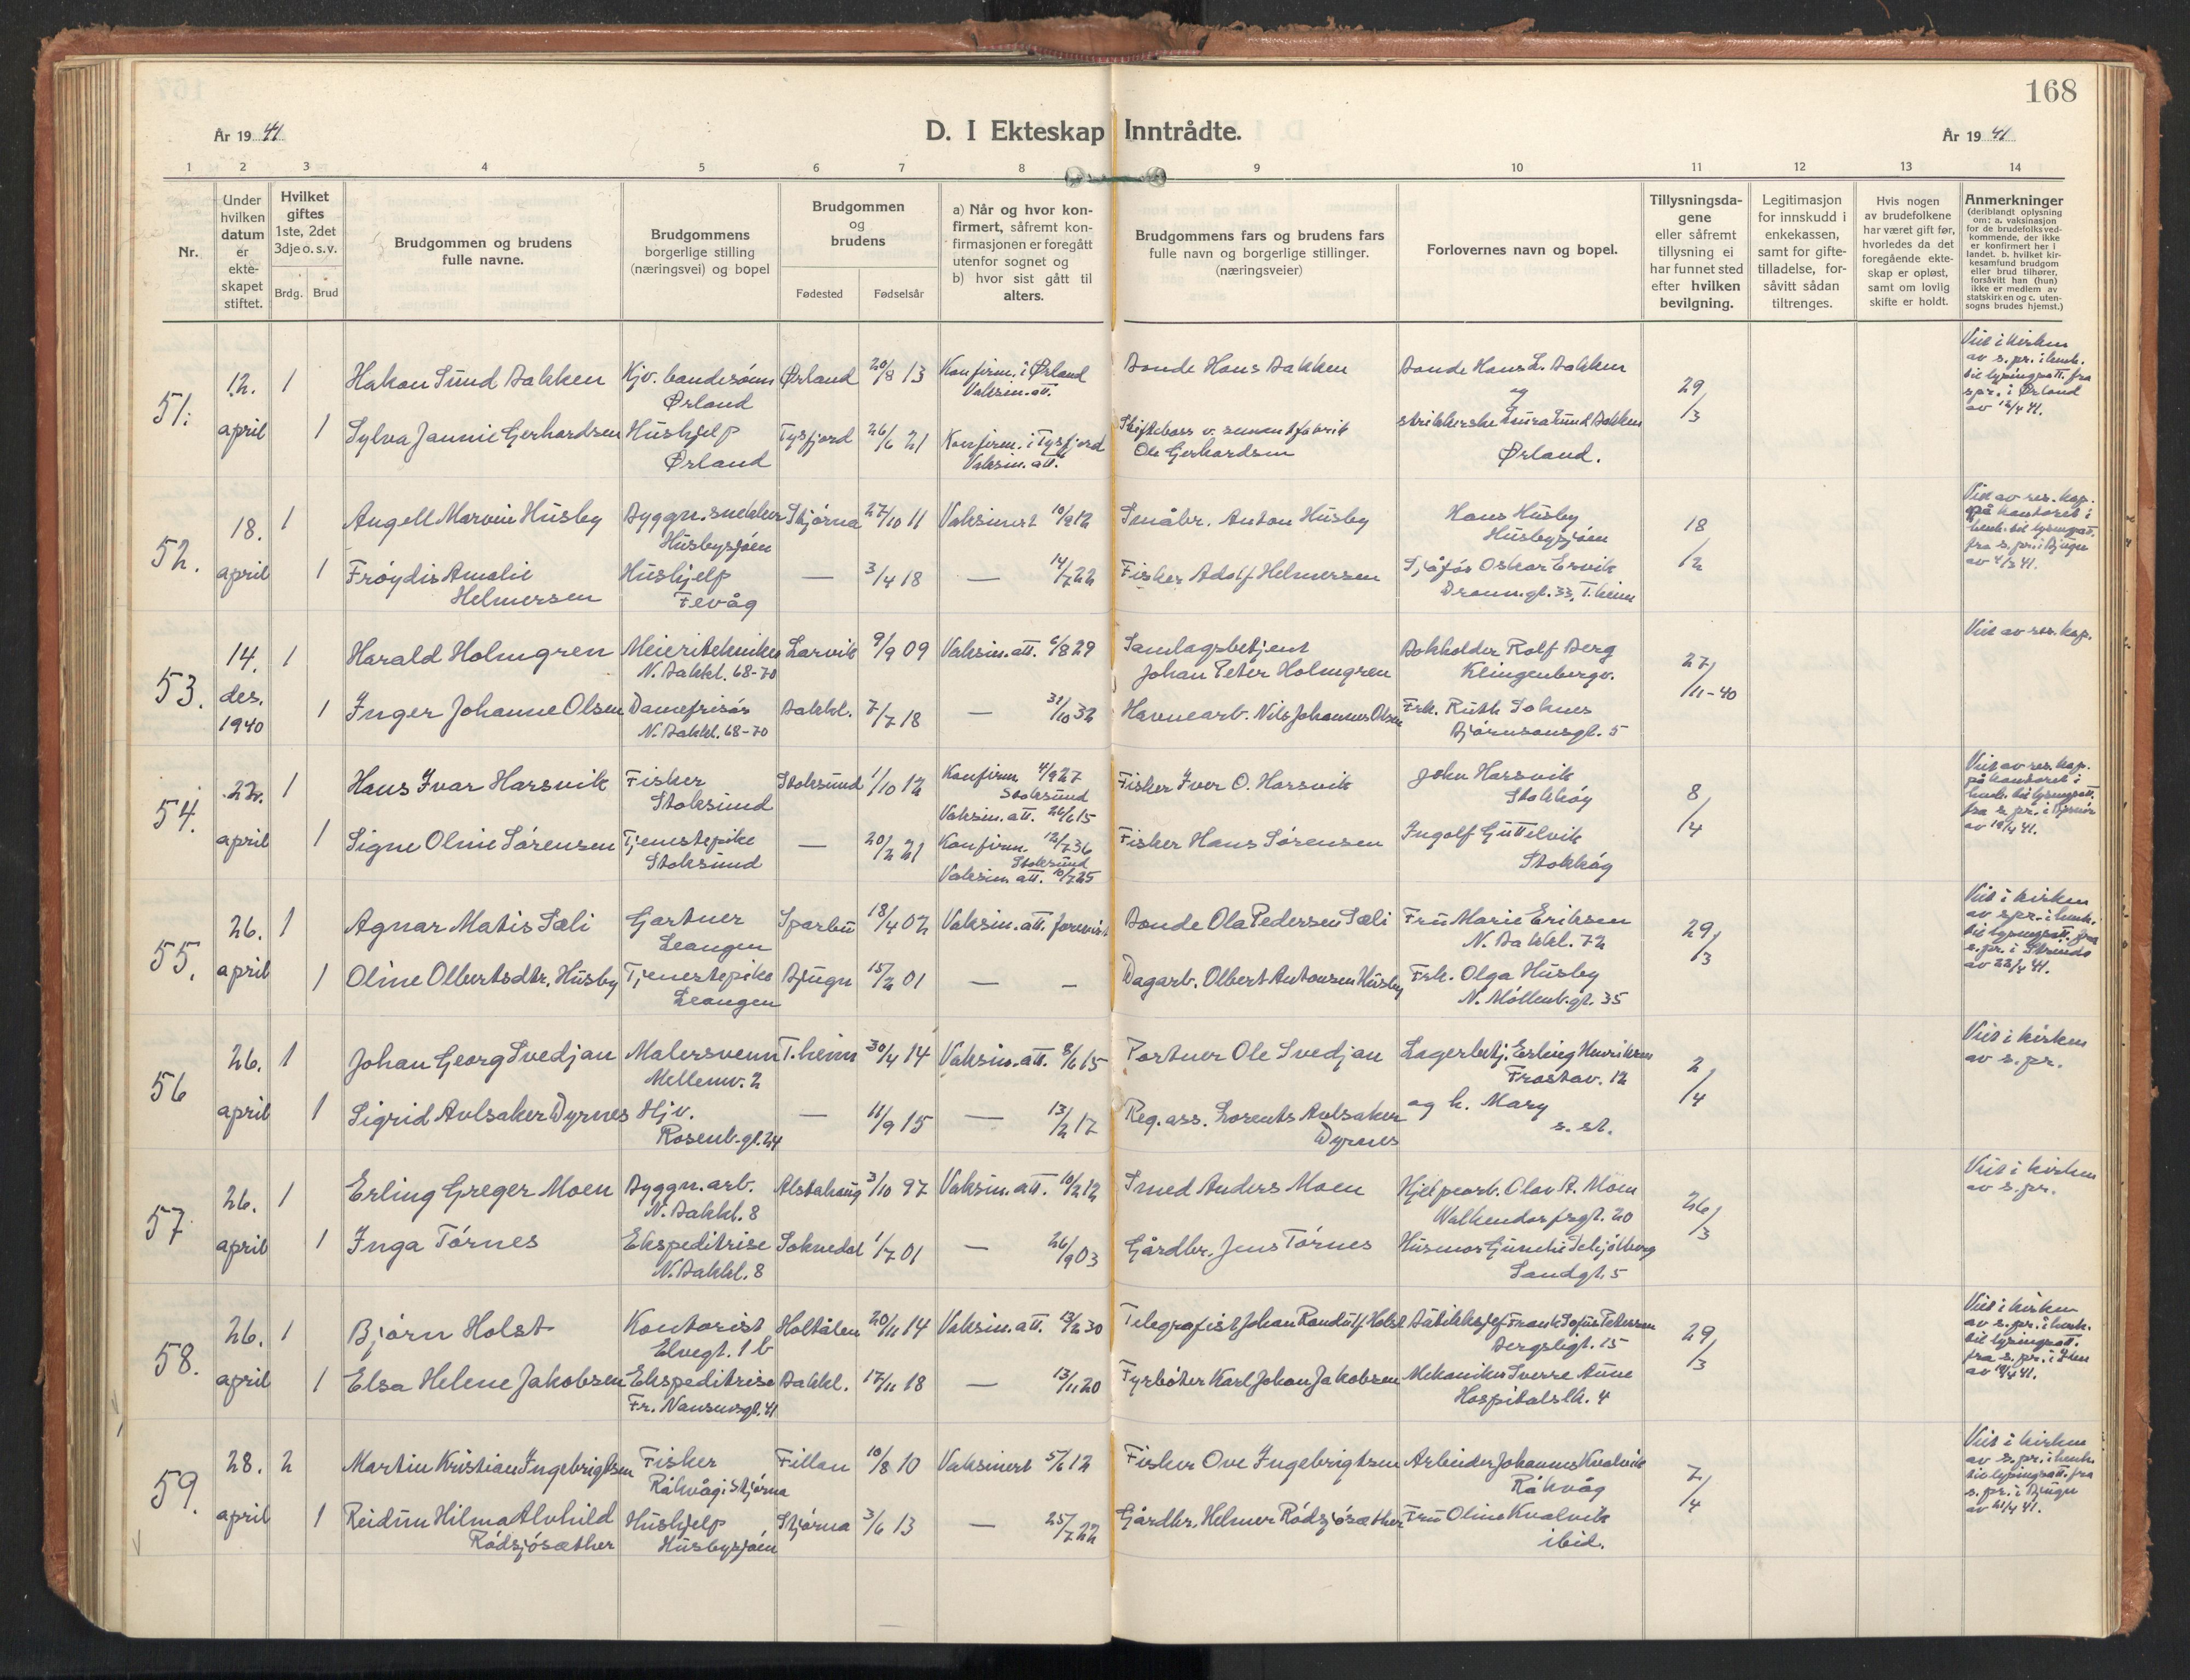 168
År 19 41
D. I Ekteskap Inntrådte.
År 19 41
1 2 3 4 5 6 7 8 9 10 11 12 13 14
Nr.
Under hvilken datum er ekte-skapet stiftet.
Hvilket giftes 1ste, 2det 3dje o. s. v.
Brdg. Brud
Brudgommen og brudens fulle navne.
Brudgommens borgerlige stilling (næringsvei) og bopel
Brudgommen og brudens
Fødested Fødselsår
a) Når og hvor kon-firmert, såfremt kon-firmasjonen er foregått utenfor sognet og
b) hvor sist gått til alters.
Brudgommens fars og brudens fars fulle navn og borgerlige stillinger. (næringsveier)
Forlovernes navn og bopel.
Tillysningsda-gene eller såfremt tillysning ei har funnet sted efter hvilken bevilgning.
Legitimasjon for innskudd i enkekassen, samt for gifte-tilladelse, for-såvitt sådan tiltrenges.
Hvis nogen av brudefolkene har været gift før, hvorledes da det foregående ekte-skap er opløst, samt om lovlig skifte er holdt.
Anmerkninger (deriblandt oplysning om: a. vaksinasjon for de brudefolksved-kommende, der ikke er konfirmert her i landet. b. hvilket kir-kesamfund brudgom eller brud tilhører, forsåvitt han (hun) ikke er medlem av statskirken og c. uten-sogns brudes hjemst.)
51. 12. april
1 Hakon Sund Bakken Hjv. bondesønn Ørland Ørland 20/8 13 Konfirm. i Ørland Vaksin. att. Bonde Hans Bakken Bonde Hans L. Bakken og 29/3
1 Sylva Jannie Gerhardsen Hushjelp Ørland Tysfjord 26/6 21 Konfirm. i Tysfjord Vaksin. att. Skiftebass v. sementfabrik Ole Gerhardsen strikkerske Laura Sund Bakken Ørland.
Viet i kirken av s. pr. i henh. til lysingsatt. fra spr. i Ørland av 12/4 41.
52. 18. april
1 Angell Marvin Husby Byggn. snekker Husbysjøen Stjørna 27/10 11 Vaksinert 10/9 12 Småbr. Anton Husby Hans Husby Husbysjøen 18/2
1 Frøydis Amalie Helmersen Hushjelp Fevåg — 3/4 18 — 14/7 22 Fisker Adolf Helmersen Sjåfør Oskar Ervik Dronn.gt. 33, T.heim
Viet av res. kap. på kontoret i henh. til lysingsatt. fra s. pr. i Bjugn
53. 14. des. 1940
1 Harald Holmgren Meieritekniker N. Bakkl. 68-70 Larvik 9/9 09 Vaksin. att. 6/8 29 Samlagsbetjent Johan Peter Holmgren Bokholder Rolf Berg Klingenbergv. 27/11-40
1 Inger Johanne Olsen Damefrisør N. Bakkl. 68-70 Bakkl. 7/7 18 — 31/10 32 Havnearb. Nils Johannes Olsen Frk. Ruth Soknes Bjørnsonsgt. 5
Viet av res. kap.
54. 22. april
1 Hans Ivar Harsvik Fisker Stoksund Stoksund 1/10 12 Konfirm. 4/9 27 Stoksund Vaksin. att. 26/6 15 Fisker Iver O. Harsvik John Harsvik Stokkøy 8/4
1 Signe Oline Sørensen Tjenestepike Stoksund — 20/2 21 Konfirm. 12/7 36 Stoksund Vaksin. att. 10/7 25 Fisker Hans Sørensen Ingolf Guttelvik Stokkøy
Viet av res. kap. på kontoret i henh. til lysingsatt. fra s. pr. i
55. 26. april
1 Agnar Matis Sæli Gartner Leangen Sparbu 18/4 02 Vaksin. att. forevist Bonde Ola Pedersen Sæli Fru Marie Eriksen N. Bakkl. 72 29/3
1 Oline Olbertsdtr. Husby Tjenestepike Leangen Bjugn 15/2 01 — — Dagarb. Olbert Antonsen Husby Frk. Olga Husby N. Møllenb.gt. 35
Viet i kirken av spr. i henh. til lysingsatt. fra s. pr. i Strinda av 22/4 41.
56 26. april
1 Johan Georg Svedjan Malersvenn Mellemv. 2 T.heim 30/4 14 Vaksin. att. 8/6 15 Portner Ole Svedjan Lagerbetj. Erling Henriksen Frostav. 12 2/4
1 Sigrid Avlsaker Dyrnes Hjv. Rosenb.gt. 24 — 11/9 15 — 13/2 17 Reg. ass. Lorents Avlsaker Dyrnes og h. Mary s. st.
Viet i kirken av s. pr.
57 26. april
1 Erling Greger Moen Byggn. arb. N. Bakkl. 8 Alstahaug 3/10 97 Vaksin. att. 10/2 12 Smed Anders Moen Hjelpearb. Olav A. Moen Walkendorfsgt. 20 26/3
1 Inga Tørnes Ekspeditrise N. Bakkl. 8 Soknedal 1/7 01 — 26/9 03 Gårdbr. Jens Tørnes Husmor Gunchi Schjølberg Sandgt. 5
Viet i kirken av s. pr.
58. 26. april
1 Bjørn Holst Kontorist Elvegt. 1 b Holtålen 20/11 14 Vaksin. att. 13/2 30 Telegrafist Johan Randulf Holst Butikksjef Frank Sofus Petersen Bergsligt. 15 29/3
1 Elsa Helene Jakobsen Ekspeditrise Fr. Nansensgt. 41 Bakkl. 17/11 18 — 13/11 20 Fyrbøter Karl Johan Jakobsen Mekaniker Sverre Aune Hospitalslk. 4
Viet i kirken av s. pr. i henh. til lysingsatt. fra s. pr. i Ilen
59. 28. april
2 Martin Kristian Ingebrigtsen Fisker Råkvåg i Stjørna Fillan 10/8 10 Vaksinert 5/6 12 Fisker Ove Ingebrigtsen Arbeider Johannes Kvalvik Råkvåg 7/4
1 Reidun Hilma Alvhild Rødsjøsæther Hushjelp Husbysjøen Stjørna 3/6 13 — 25/7 22 Gårdbr. Helmer Rødsjøsæther Fru Oline Kvalvik ibid.
Viet i kirken av s. pr. i henh. til lysingsatt. fra s. pr. i Bjugn av 21/4 41.